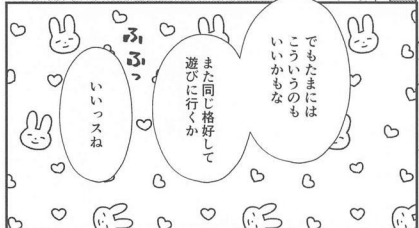 でもたまには
こういうのも
いいかもな
また同じ格好して
遊びに行くか
ふふっ
いいっスね